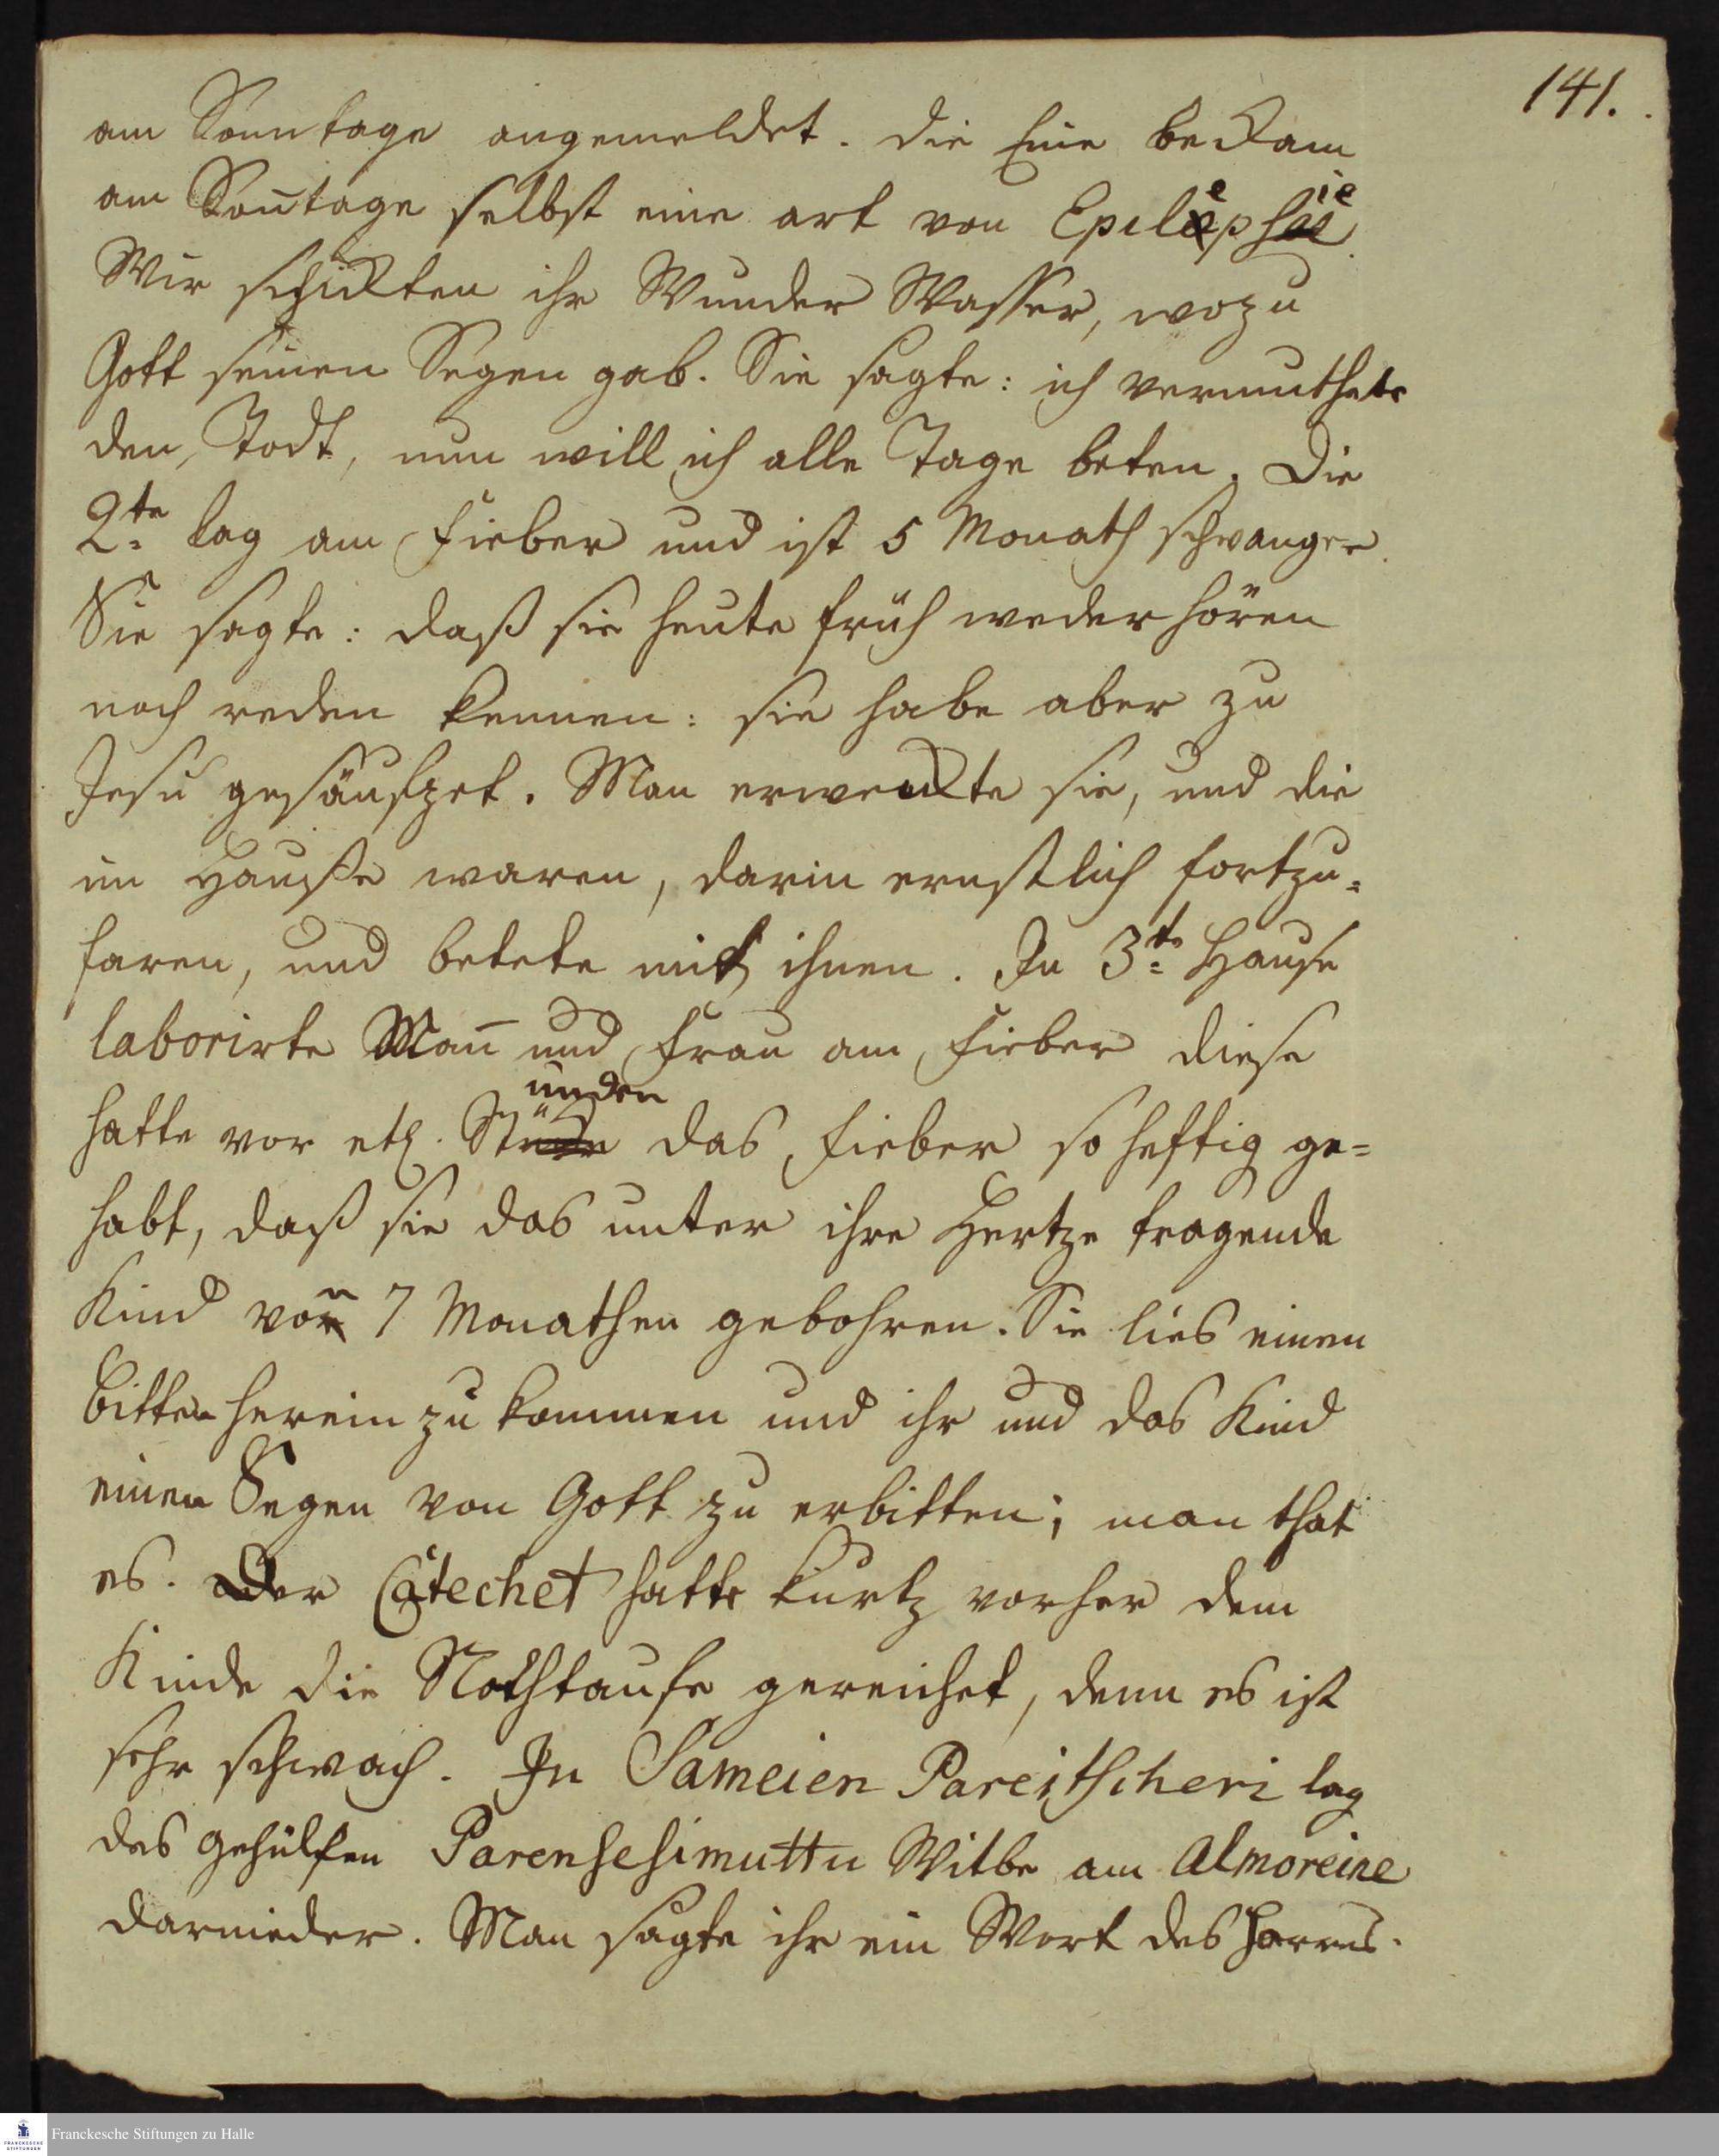 141.
am Sonntage angemeldet. die Eine beckam
am Son̄tage selbst eine art von Epilepsie.
Wir schickten ihr Wunder Wasser, wozu
Gott seinen Segen gab. Sie sagte: ich vermuthete
den Todt, nun will ich alle Tage beten. Die
2te lag am Fieber und ist 5 Monath schwanger.
Sie sagte: daß sie heute früh weder hören
noch reden kennen: sie habe aber zu
Jesu gesäufzet. Man erweckte sie, und die
im Hauße waren, darin ernstlich fortzu=
faren, und betete mit ihnen. In 3t Hause
laborirte Man̄ und Frau am Fieber diese
hatte vor etl. Stunden das Fieber so heftig ge=
habt, daß sie das unter ihre Hertze tragende
Kind von 7 Monathen gebohren. Sie lies einen
bitten herein zu kommen und ihr und das Kind
einen Segen von Gott zu erbitten; man that
es. Der Catechet hatte kurtz vorher dem
Kinde die Nothtaufe gereichet, denn es ist
sehr schwach. In Sameien Pareitscheri lag
des Gehülfen Parensesimuttu Witbe am Almoreine
darnieder. Man sagte ihr ein Wort des Herrns.
Franckesche Stiftungen zu Halle